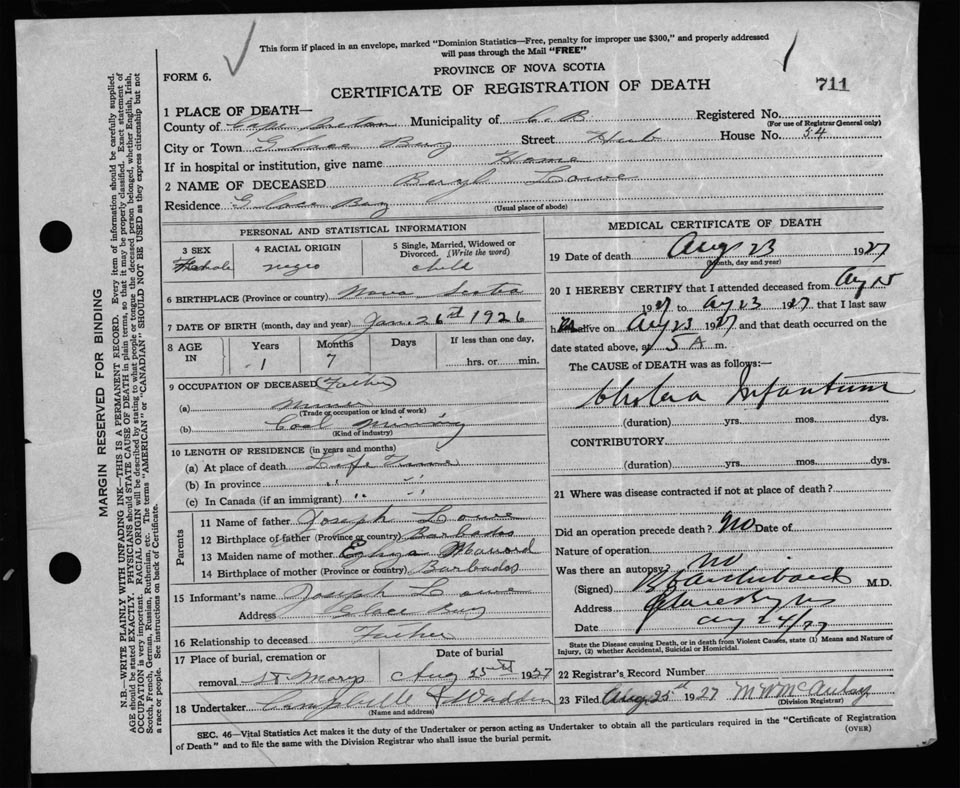 This form if placed in an envelope, marked "Dominion Statistics—Free, penalty for improper use $300," and properly addressed
will pass through the Mail "FREE"
FORM 6.
PROVINCE OF NOVA SCOTIA
CERTIFICATE OF REGISTRATION OF DEATH
711
1 PLACE OF DEATH—
County of Cape Breton Municipality of C. B. Registered No.
(For use of Registrar General only)
City or Town Glace Bay Street Hub House No. 54
If in hospital or institution, give name Home
2 NAME OF DECEASED Beryl Lowe
Residence Glace Bay
(Usual place of abode)
PERSONAL AND STATISTICAL INFORMATION
3 SEX
4 RACIAL ORIGIN
5 Single, Married, Widowed or
Divorced. (Write the word)
negro
child
6 BIRTHPLACE (Province or country) Nova Scotia
7 DATE OF BIRTH (month, day and year) Jan. 26th 1926
8 AGE IN
Years
Months
Days
If less than one day,
1
7
hrs. or min.
9 OCCUPATION OF DECEASED (Father)
(a) Miner
(Trade or occupation or kind of work)
(b) Coal Mining
(Kind of industry)
10 LENGTH OF RESIDENCE (in years and months)
(a) At place of death Life Time
(b) In province " "
(c) In Canada (if an immigrant) " "
Parents
11 Name of father Joseph Lowe
12 Birthplace of father (Province or country) Barbados
13 Maiden name of mother
14 Birthplace of mother (Province or country) Barbados
15 Informant's name Joseph Lowe
Address Glace Bay
16 Relationship to deceased Father
17 Place of burial, cremation or
removal St Marys
Date of burial
Aug 25th 1927
18 Undertaker Campbell & Wadden
(Name and address)
MEDICAL CERTIFICATE OF DEATH
19 Date of death Aug 23 1927
(Month, day and year)
20 I HEREBY CERTIFY that I attended deceased from Aug 15
1927 to Aug 23 1927, that I last saw
h alive on Aug 23 1927 and that death occurred on the
date stated above, at 5 A m.
The CAUSE of DEATH was as follows:—
Cholera Infantum
(duration) yrs. mos. dys.
CONTRIBUTORY
(duration) yrs. mos. dys.
21 Where was disease contracted if not at place of death?
Did an operation precede death? No Date of
Nature of operation
Was there an autopsy? no
(Signed) Archibald M.D.
Address Glace Bay NS
Date Aug 24/27
State the Disease causing Death, or in death from Violent Causes, state (1) Means and Nature of
Injury, (2) whether Accidental, Suicidal or Homicidal.
22 Registrar's Record Number
23 Filed Aug 25th 1927 McAulay
(Division Registrar)
SEC. 46—Vital Statistics Act makes it the duty of the Undertaker or person acting as Undertaker to obtain all the particulars required in the "Certificate of Registration
of Death" and to file the same with the Division Registrar who shall issue the burial permit.
(OVER)
MARGIN RESERVED FOR BINDING
N.B.—WRITE PLAINLY WITH UNFADING INK—THIS IS A PERMANENT RECORD. Every item of information should be carefully supplied.
AGE should be stated EXACTLY. PHYSICIANS should STATE CAUSE OF DEATH in plain terms, so that it may be properly classified. Exact statement of
OCCUPATION is very important. RACIAL ORIGIN will be described by stating to what people or tongue the deceased person belonged, whether English, Irish,
Scotch, French, German, Russian, Ruthenian, etc. The terms "AMERICAN" or "CANADIAN" SHOULD NOT BE USED as they express citizenship but not
a race or people. See instructions on back of Certificate.